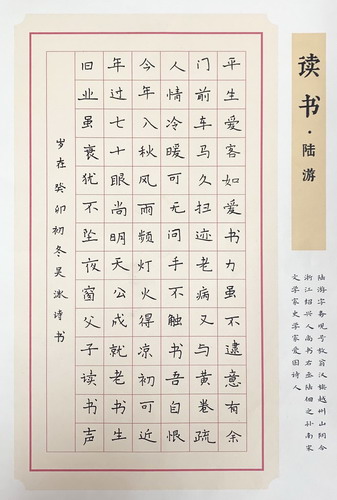 读书·陆游
陆游字务观号放翁汉族越州山阴今
浙江绍兴人尚书右丞陆佃之孙南宋
文学家史学家爱国诗人
平生爱客如爱书力虽不逮意有余
门前车马久扫迹老病又与黄卷疏
人情冷暖可无问手不触书吾自恨
今年入秋风雨频灯火得凉初可近
年过七十眼尚明天公成就老书生
旧业虽衰犹不坠夜窗父子读书声
岁在癸卯初冬吴诗书